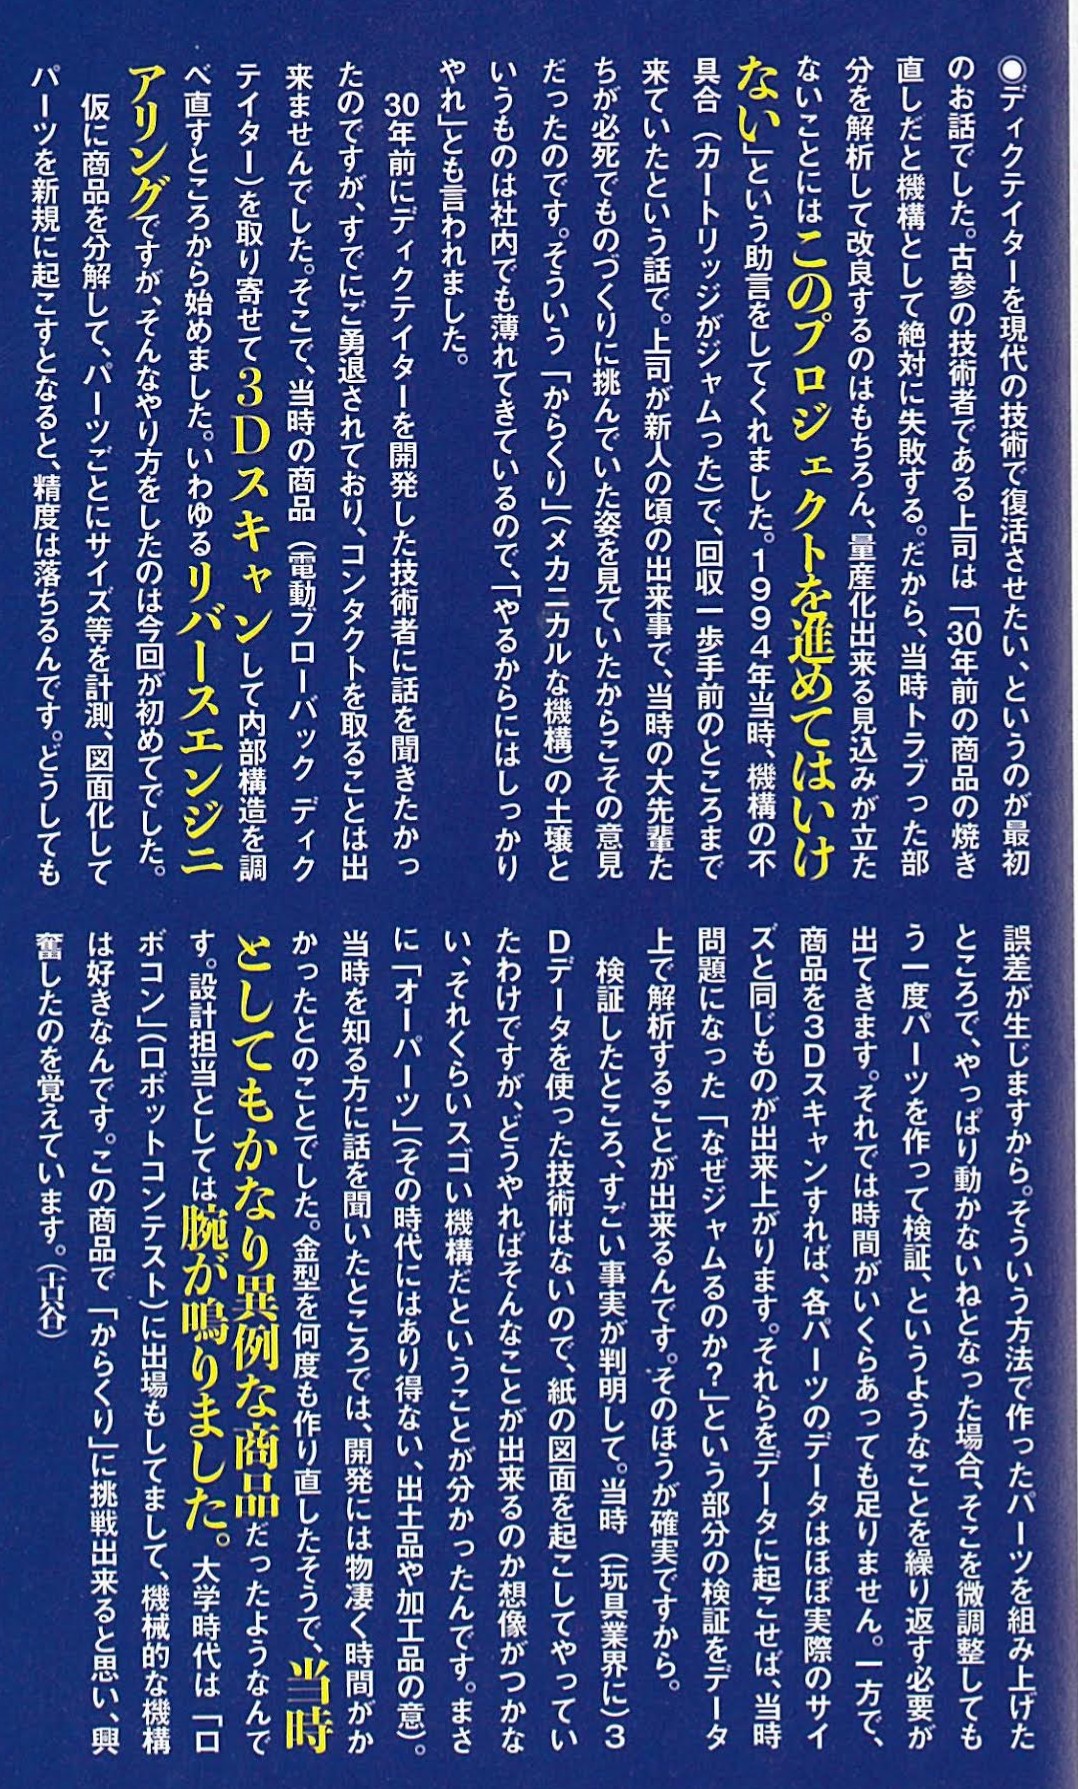 ◉ディクテイターを現代の技術で復活させたい、というのが最初
のお話でした。古参の技術者である上司は「30年前の商品の焼き
直しだと機構として絶対に失敗する。だから、当時トラブった部
分を解析して改良するのはもちろん、量産化出来る見込みが立た
ないことにはこのプロジェクトを進めてはいけ
ない」という助言をしてくれました。1994年当時、機構の不
具合（カートリッジがジャムった）で、回収一歩手前のところまで
来ていたという話で。上司が新人の頃の出来事で、当時の大先輩た
ちが必死でものづくりに挑んでいた姿を見ていたからこその意見
だったのです。そういう「からくり」（メカニカルな機構）の土壌と
いうものは社内でも薄れてきているので、「やるからにはしっかり
やれ」とも言われました。
30年前にディクテイターを開発した技術者に話を聞きたかっ
たのですが、すでにご勇退されており、コンタクトを取ることは出
来ませんでした。そこで、当時の商品（電動ブローバック ディク
テイター）を取り寄せて3Dスキャンして内部構造を調
べ直すところから始めました。いわゆるリバースエンジニ
アリングですが、そんなやり方をしたのは今回が初めてでした。
仮に商品を分解して、パーツごとにサイズ等を計測、図面化して
パーツを新規に起こすとなると、精度は落ちるんです。どうしても
誤差が生じますから。そういう方法で作ったパーツを組み上げた
ところで、やっぱり動かないねとなった場合、そこを微調整しても
う一度パーツを作って検証、というようなことを繰り返す必要が
出てきます。それでは時間がいくらあっても足りません。一方で、
商品を3Dスキャンすれば、各パーツのデータはほぼ実際のサイ
ズと同じものが出来上がります。それらをデータに起こせば、当時
問題になった「なぜジャムるのか？」という部分の検証をデータ
上で解析することが出来るんです。そのほうが確実ですから。
検証したところ、すごい事実が判明して。当時（玩具業界に）3
Dデータを使った技術はないので、紙の図面を起こしてやってい
たわけですが、どうやればそんなことが出来るのか想像がつかな
い、それくらいスゴい機構だということが分かったんです。まさ
に「オーパーツ」（その時代にはあり得ない、出土品や加工品の意）。
当時を知る方に話を聞いたところでは、開発には物凄く時間がか
かったとのことでした。金型を何度も作り直したそうで、当時
としてもかなり異例な商品だったようなんで
す。設計担当としては腕が鳴りました。大学時代は「ロ
ボコン」（ロボットコンテスト）に出場もしてまして、機械的な機構
は好きなんです。この商品で「からくり」に挑戦出来ると思い、興
奮したのを覚えています。（古谷）